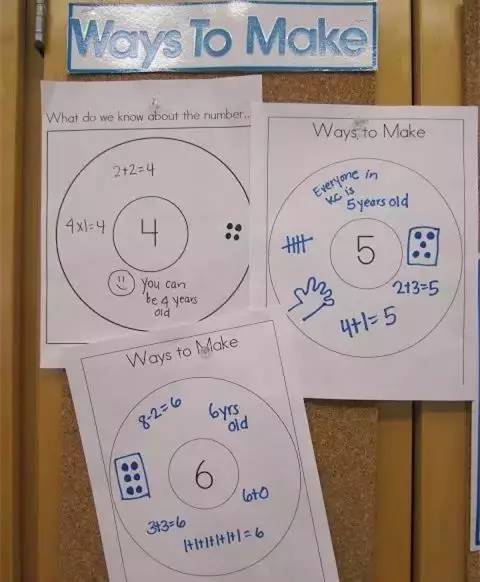 Ways To Make
What do we know about the number...
2+2=4
4x1=4
4
you can
be 4 years
old
Ways to Make
Everyone in
KC is
5 years old
5
2+3=5
4+1=5
Ways to Make
8-2=6
6yrs
old
6
6+0
3+3=6
1+1+1+1+1+1=6